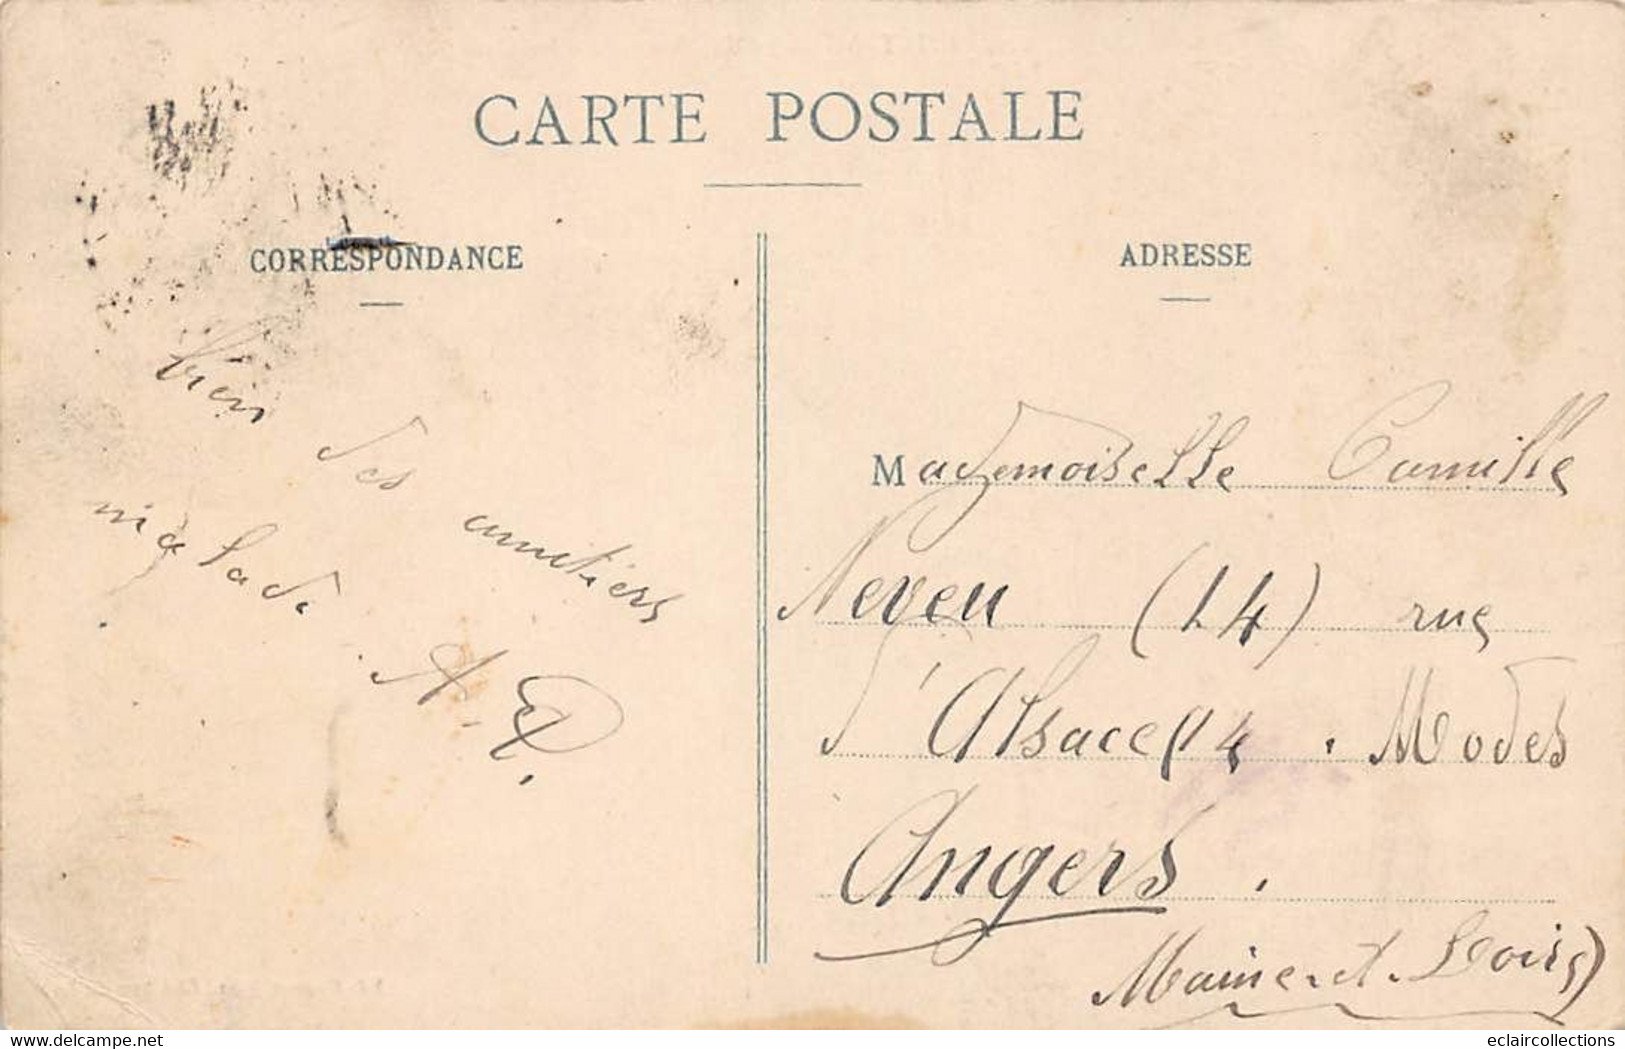 CARTE POSTALE
CORRESPONDANCE
ADRESSE
bien
des
amitiers
malade
A.
Mademoiselle Camille
Neveu (14) rue
d'Alsace 14. Modes
Angers.
Maine et Loire)
delcampe.net
eclaircollections